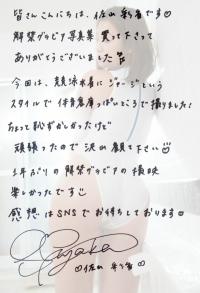 皆さんこんにちは、佐山彩香です♡
解禁グラビア写真集 買って下さって
ありがとうございました
今回は、競泳水着にジャージという
スタイルで体育倉庫っぽいところで撮りました!
ちょっと恥ずかしかったけど
頑張ったので沢山観て下さい
1年ぶりの解禁グラビアの撮影
楽しかったです
感想はSNSでお待ちしております♡
♡佐山彩香♡